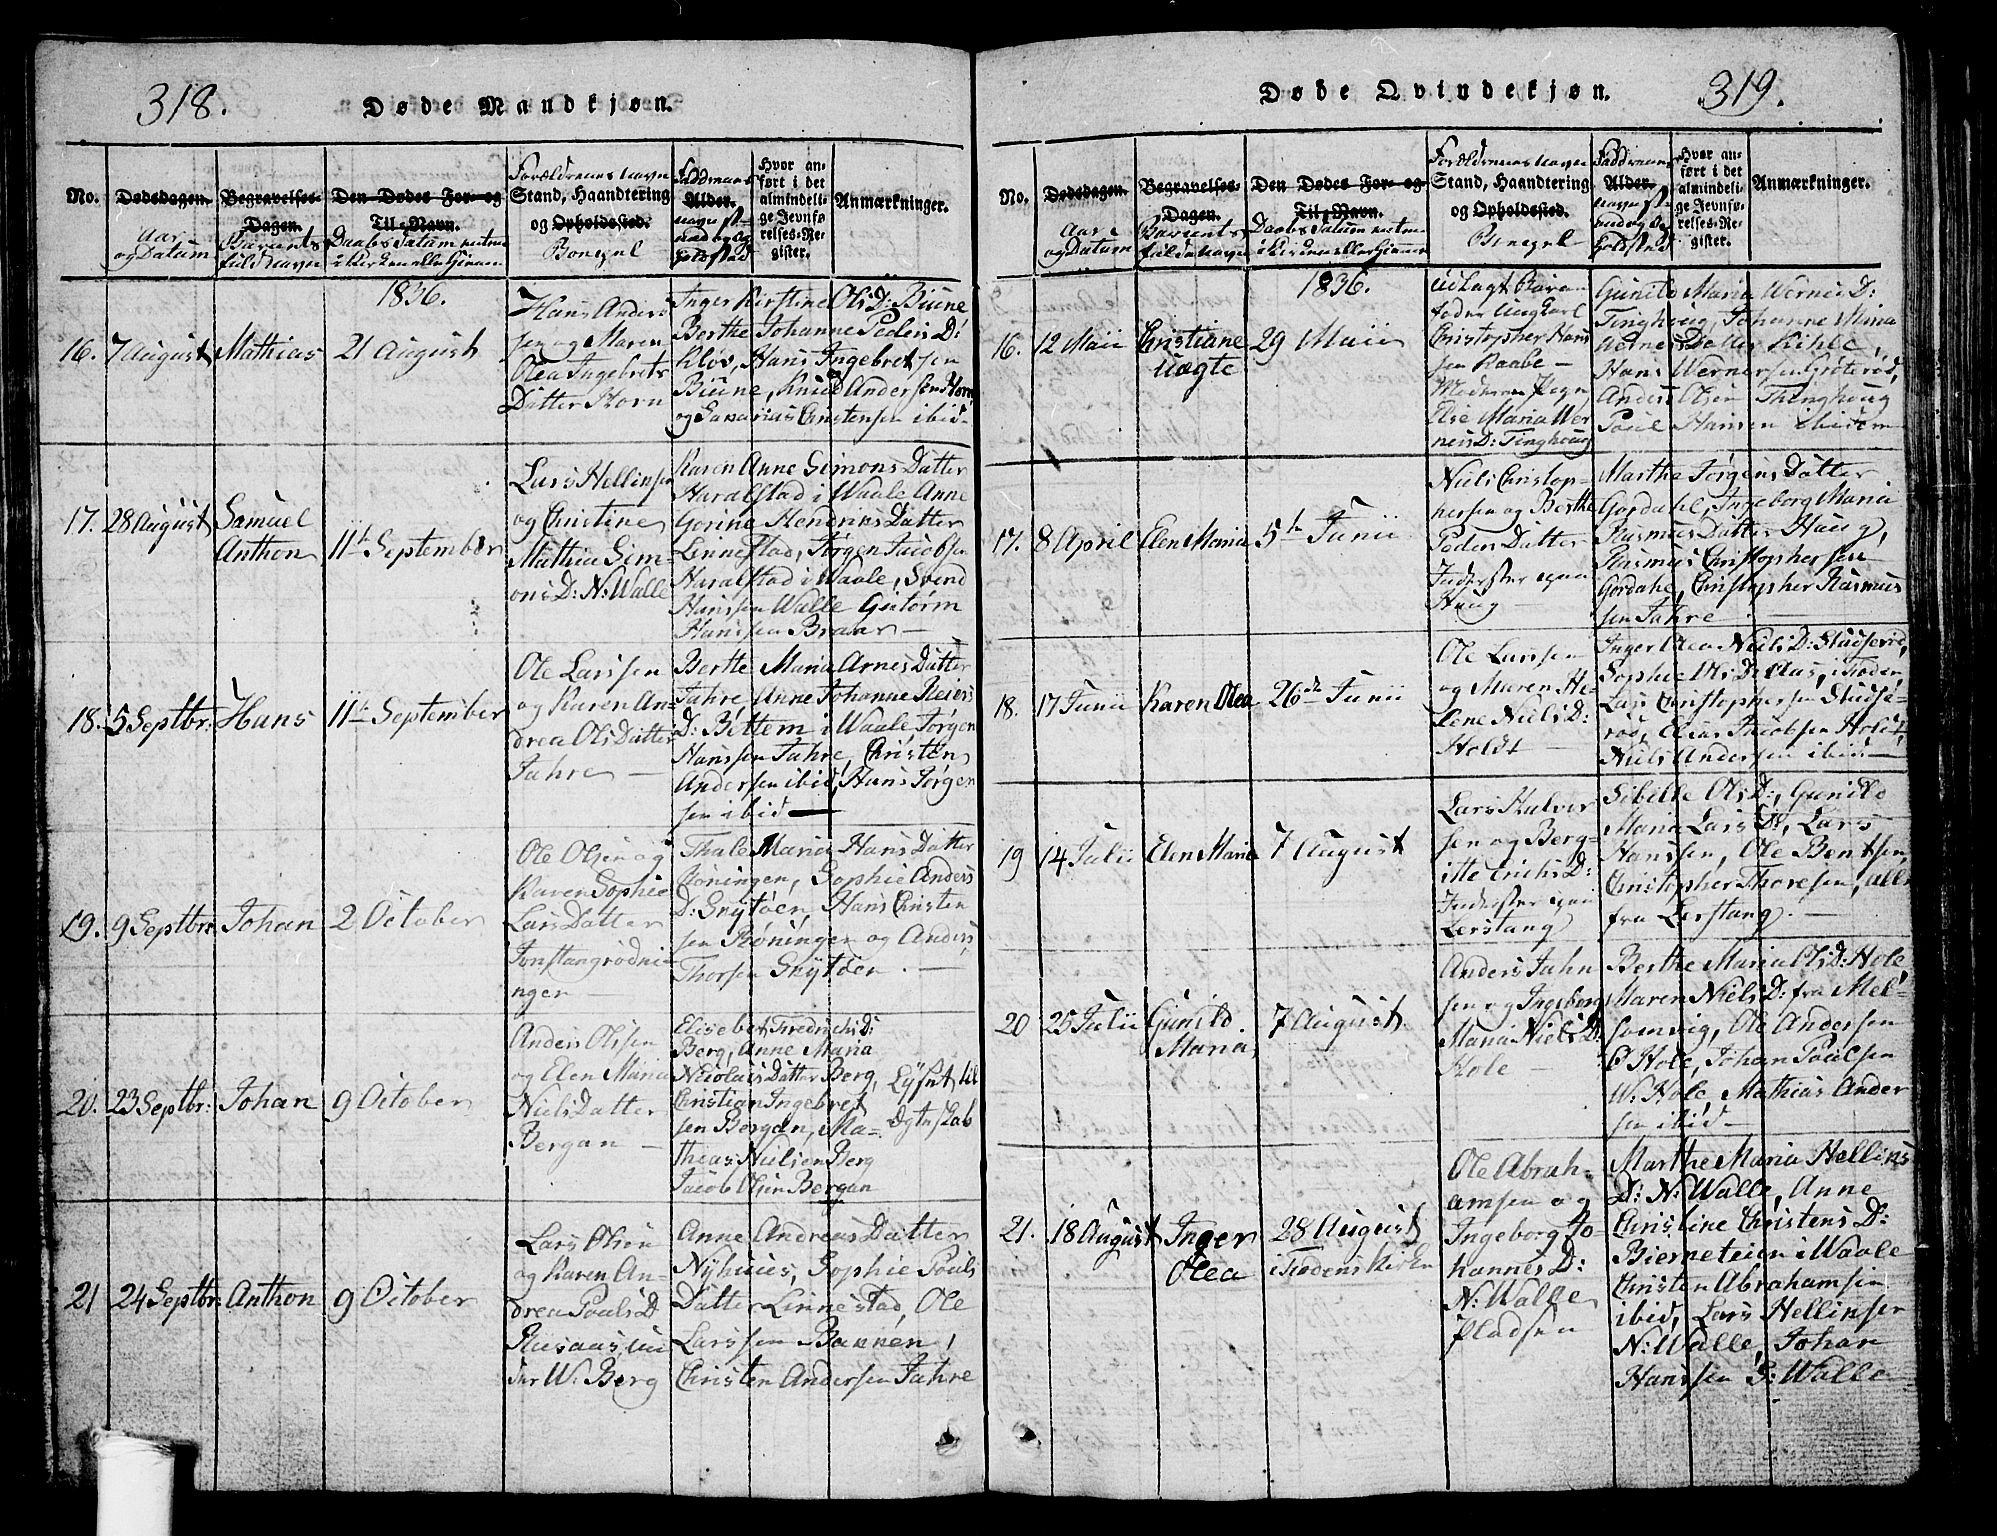 318.
Døde Mandkjøn.
No.
Dødsdagen.
Aar
og Datum
Begravelses-
Dagen.
Barnets
fulde navn
Den Dødes For- og
Til-Navn.
Daabs Datum enten
i Kirken eller Hiemme
Forældrenes navn
Stand, Haandtering
og Opholdssted.
Boepæl
Faddrenes
Alder.
navn st-
and og Op
holdsted
Hvor an-
ført i det
almindeli-
ge Jevnfø-
relses-Re-
gister.
Anmærkninger.
1836.
16.
7 August
Mathias
21 August
Hans Anders
sen og Maren
Olea Ingebrets
Datter Horn
Inger Kirstine Ols D: Biune
Berthe Johanne Peders D:
Klov, Hans Ingebretsen
Biune, Knud Andersen Horn
og Sakarias Christensen ibid-
17.
28 August
Samuel
Anthon
11te September
Lars Hellinsen
og Christine
Mathia Sim-
ons D: N: Walle
Karen Anne Simons Datter
Haralstad i Waale Anne
Gorine Hendrics Datter
Linnestad, Jørgen Jacobsen
Haralstad i Waale, Svend
Hanssen Walle Gutorm
Hanssen Braar-
18.
5 Septbr:
Hans
11te September
Ole Larssen
og Karen An-
drea Ols Datter
Jahre —
Berthe Maria Arnes Datter
Jahre, Anne Johanne Reiers
D: Bettem i Waale, Jørgen
Hanssen Jahre, Christen
Andersen ibid, Hans Jørgen
sen ibid —
19.
9 Septbr:
Johan
2 October
Ole Olsen og
Karen Sophie
Lars Datter
ngen —
Thale Maria Hans Datter
Røningen, Sophie Anders
D: Snytøen, Hans Christen
sen Røningen og Anders
Thorsen Snytøen. —
20.
23 Septbr:
Johan
9 October
Anders Olssen
og Elen Maria
Niels Datter
Bergan —
Elisebet Fredrichs D:
Berg, Anne Maria
Nicolais Datter Berg,
Christian Ingebret
sen Bergan, Ma-
theas Nielsen Berg
Jacob Olsen Bergan
Lyst til
21
24 Septbr:
Anthon
9 October
Lars Olsen
og Karen An-
drea Pouls D
W: Berg
Anne Andreas Datter
Nyhuus, Sophie Pouls
Datter Linnestad, Ole
Larssen Bakken,
Christen Andersen Jahre
319.
Døde Qvindekjøn.
No.
Dødsdagen.
Aar
og Datum
Begravelses-
Dagen.
Barnets
fulde navn
Den Dødes For- og
Til-Navn.
Daabs Datum enten
i Kirken eller Hiemme
Forældrenes navn
Stand, Haandtering
og Opholdssted.
Boepæl
Faddrenes
Alder.
navn st-
and og Op
holdsted
Hvor an-
ført i det
almindeli-
ge Jevnfø-
relses-Re-
gister.
Anmærkninger.
1836.
16.
12 Maii
Christiane
29 Maii
Udlagt Barne
fader Ung Carl
Christopher Hans
sen Raabe —
Moderen Pigen
Else Maria Wer
neis D: Tinghoug
Gunild Maria Werneis D:
Tinghoug, Johanne Maria
Werners Datter Kihle,
Hans Wernersen
Anders Olsen Thinghoug
Poul Hansen ibidem
17.
8 April
Elen Maria
5te Junii
Niels Christop-
hersen og Berthe
Peders Datter
Inderster paa
Haug
Marthe Jørgens Datter
Gordahl, Ingeborg Maria
Rasmus Datter Haug,
Rasmus Christophersen
Gordahl, Christopher Rasmus
sen Jahre
18.
17 Junii
Karen Olea
26de Junii
Ole Larssen
og Maren He-
lene Niels D:
Holdt —
Inger Olea Niels D:
Sophie Ols D: Aas, i Foden,
Lars Christophersen
Elias Jacobsen Holdt
Niels Andersen ibid —
19
14 Julii
Elen Maria
7 August
Lars Halver
sen og Berg-
itte Erichs D:
Inderster paa
Lerstang
Sibelle Ols D:, Gunild
Maria Lars D:, Lars
Hanssen, Ole Bentsen
Christopher Thoresen, alle
fra Lerstang. —
20
25 Julii
Gunild
Maria
7 August
Anders Jahn
sen og Ingeborg
Maria Niels D:
Hole —
Berthe Maria Ols D: Hole
Maren Niels D: fra Mel-
somvig, Ole Andersen
Ø Hole, Johan Poulsen
W. Hole, Mathias Ander
sen ibid —
21.
18 August
Inger
Olea
28 August
i Fodens Kirke
Ole Abrah-
amsen og
Ingeborg Jo-
hannes D:
N: Walle
Pladsen
Marthe Maria Hellins
D: N: Walle, Anne
Christine Christens D:
Bierneteien i Waale
Christen Abrahamsen
ibid, Lars Hellinsen
N: Walle, Johan
Hanssen S: Walle